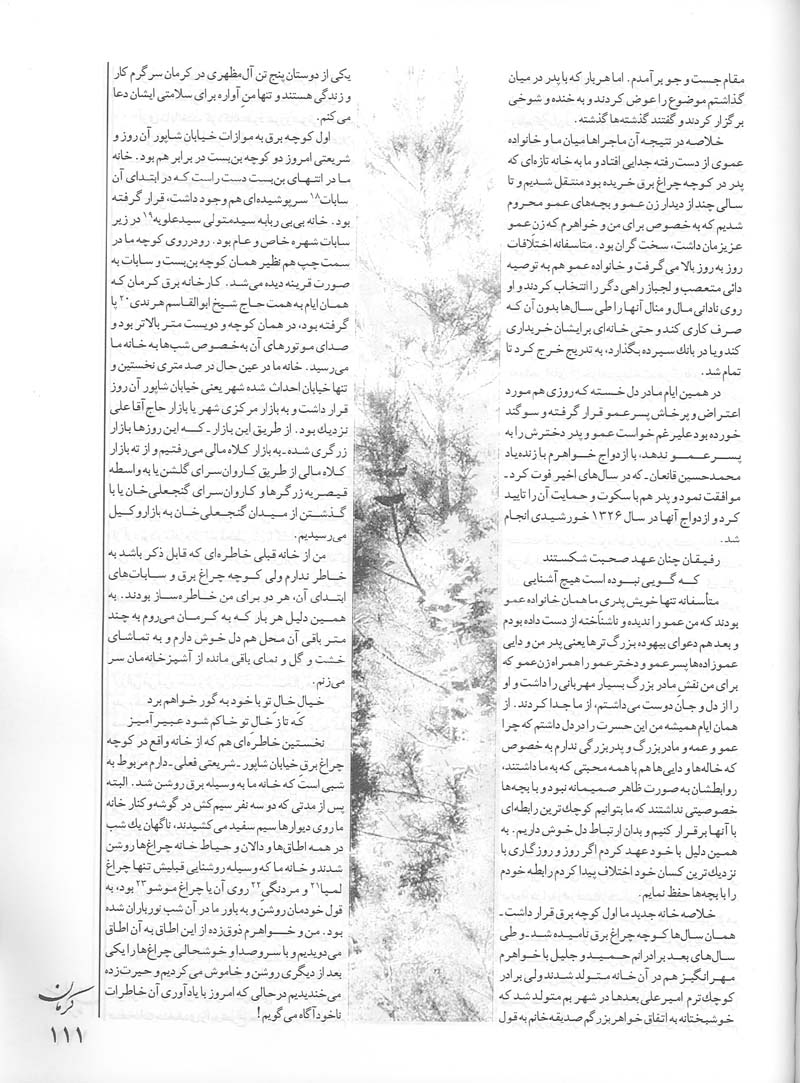 مقام جست و جو برآمدم. اما هربار که با پدر در میان
گذاشتم موضوع را عوض کردند و به خنده و شوخی
برگزار کردند و گفتند گذشته‌ها گذشته.
خلاصه در نتیجه آن ماجراها میان ما و خانواده
عموی از دست رفته جدایی افتاد و ما به خانه تازه‌ای که
پدر در کوچه چراغ برق خریده بود منتقل شدیم و تا
سالی چند از دیدار زن عمو و بچه‌های عمو محروم
شدیم که به خصوص برای من و خواهرم که زن عمو
عزیزمان داشت، سخت گران بود. متاسفانه اختلافات
روز به روز بالا می‌گرفت و خانواده عمو هم به توصیه
دائی متعصب و لجباز راهی دگر را انتخاب کردند و او
روی نادانی مال و منال آنها را طی سال‌ها بدون آن که
صرف کاری کند و حتی خانه‌ای برایشان خریداری
کند و یا در بانک سپرده بگذارد، به تدریج خرج کرد تا
تمام شد.
در همین ایام مادر دل خسته که روزی هم مورد
اعتراض و پرخاش پسر عمو قرار گرفته و سوگند
خورده بود علیرغم خواست عمو و پدر دخترش را به
پسر عمو ندهد، با ازدواج خواهرم با زنده‌یاد
محمدحسین قانعان ـ که در سال‌های اخیر فوت کرد ـ
موافقت نمود و پدر هم با سکوت و حمایت آن را تایید
کرد و ازدواج آنها در سال ۱۳۲۶ خورشیدی انجام
شد.
رفیقان چنان عهد صحبت شکستند
که گویی نبوده است هیچ آشنایی
متأسفانه تنها خویش پدری ما همان خانواده عمو
بودند که من عمو را ندیده و ناشناخته از دست داده بودم
و بعد هم دعوای بیهوده بزرگ‌ترها یعنی پدر من و دایی
عموزاده‌ها پسر عمو و دختر عمو را همراه زن عمو که
برای من نقش مادر بزرگ بسیار مهربانی را داشت و او
را از دل و جان دوست می‌داشتم، از ما جدا کردند. از
همان ایام همیشه من این حسرت را در دل داشتم که چرا
عمو و عمه و مادربزرگ و پدربزرگی ندارم به خصوص
که خاله‌ها و دایی‌ها هم با همه محبتی که به ما داشتند،
روابطشان به صورت ظاهر صمیمانه نبود و با بچه‌ها
خصوصیتی نداشتند که ما بتوانیم کوچک‌ترین رابطه‌ای
با آنها برقرار کنیم و بدان ارتباط دل خوش داریم. به
همین دلیل با خود عهد کردم اگر روز و روزگاری با
نزدیک‌ترین کسان خود اختلاف پیدا کردم رابطه خودم
را با بچه‌ها حفظ نمایم.
خلاصه خانه جدید ما اول کوچه برق قرار داشت ـ
همان سال‌ها کوچه چراغ برق نامیده شد ـ و طی
سال‌های بعد برادرانم حمید و جلیل با خواهرم
مهرانگیز هم در آن خانه متولد شدند ولی برادر
کوچک‌ترم امیرعلی بعدها در شهر بم متولد شد که
خوشبختانه به اتفاق خواهر بزرگم صدیقه خانم به قول
یکی از دوستان پنج تن آل‌مظهری در کرمان سرگرم کار
و زندگی هستند و تنها منِ آواره برای سلامتی ایشان دعا
می‌کنم.
اول کوچه برق به موازات خیابان شاپور آن روز و
شریعتی امروز دو کوچه بن‌بست در برابر هم بود. خانه
ما در انتهای بن‌بست دست راست که در ابتدای آن
سابات۱۸ سرپوشیده‌ای هم وجود داشت، قرار گرفته
بود. خانه بی‌بی ربابه سیدمتولی سیدعلویه۱۹ در زیر
سابات شهره خاص و عام بود. رودرروی کوچه ما در
سمت چپ هم نظیر همان کوچه بن‌بست و سابات به
صورت قرینه دیده می‌شد. کارخانه برق کرمان که
همان ایام به همت حاج شیخ ابوالقاسم هرندی۲۰ پا
گرفته بود، در همان کوچه و دویست متر بالاتر بود و
صدای موتورهای آن به‌خصوص شب‌ها به خانه ما
می‌رسید. خانه ما در عین حال در صد متری نخستین و
تنها خیابان احداث شده شهر یعنی خیابان شاپور آن روز
قرار داشت و به بازار مرکزی شهر یا بازار حاج آقا علی
نزدیک بود. از طریق این بازار ـ که این روزها بازار
زرگری شده ـ به بازار کلاه مالی می‌رفتیم و از ته بازار
کلاه مالی از طریق کاروان‌سرای گلشن یا به واسطه
قیصریه زرگرها و کاروان‌سرای گنجعلی‌خان یا با
گذشتن از میدان گنجعلی‌خان به بازار وکیل
می‌رسیدیم.
من از خانه قبلی خاطره‌ای که قابل ذکر باشد به
خاطر ندارم ولی کوچه چراغ برق و سابات‌های
ابتدای آن، هر دو برای من خاطره‌ساز بودند. به
همین دلیل هر بار که به کرمان می‌روم به چند
متر باقی آن محل هم دل خوش دارم و به تماشای
خشت و گل و نمای باقی مانده از آشپزخانه‌مان سر
می‌زنم.
خیال خال تو با خود به گور خواهم برد
که تا ز خال تو خاکم شود عبیرآمیز
نخستین خاطره‌ای هم که از خانه واقع در کوچه
چراغ برق خیابان شاپور ـ شریعتی فعلی ـ دارم مربوط به
شبی است که خانه ما به وسیله برق روشن شد. البته
پس از مدتی که دو سه نفر سیم‌کش در گوشه و کنار خانه
ما روی دیوارها سیم سفید می‌کشیدند، ناگهان یک شب
در همه اطاق‌ها و دالان و حیاط خانه چراغ‌ها روشن
شدند و خانه ما که وسیله روشنایی قبلیش تنها چراغ
لمپا۲۱ و مردنگی۲۲ روی آن یا چراغ موشو۲۳ بود، به
قول خودمان روشن و به باور ما در آن شب نورباران شده
بود. من و خواهرم ذوق‌زده از این اطاق به آن اطاق
می‌دویدیم و با سروصدا و خوشحالی چراغ‌ها را یکی
بعد از دیگری روشن و خاموش می‌کردیم و حیرت‌زده
می‌خندیدیم در حالی که امروز با یادآوری آن خاطرات
ناخودآگاه می‌گویم!
کرمان
۱۱۱